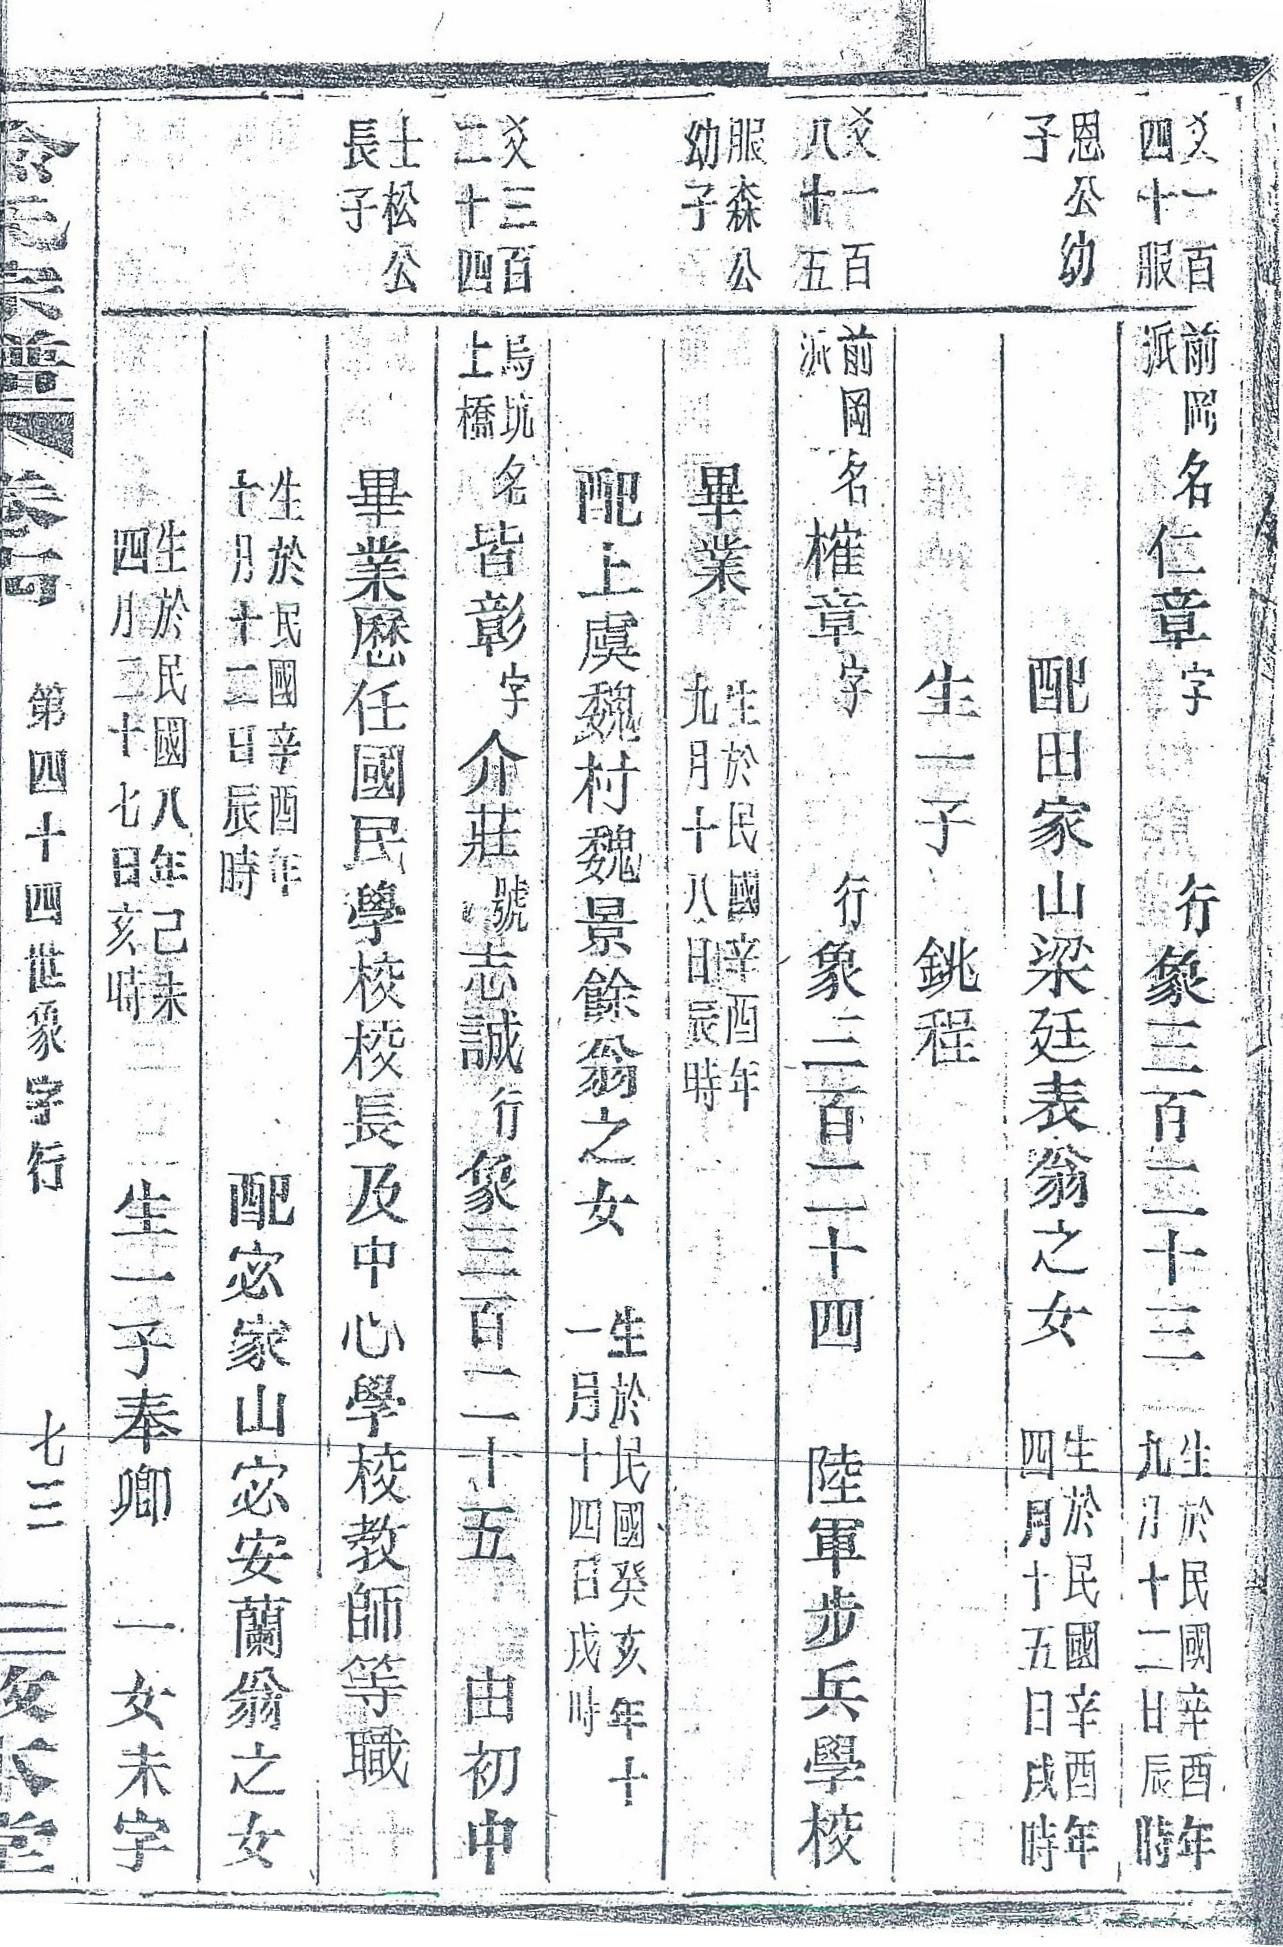 爻一百
四十服
恩公幼
子
前岡
派
名仁章字
行象三百二十三
生於民國辛酉年
九月十二日辰時
配田家山梁廷表翁之女
生於民國辛酉年
四月十五日戌時
生一子
銚程
爻一百
八十五
服森公
幼子
前岡
派
名榷章字
行象三百二十四
陸軍步兵學校
畢業
生於民國辛酉年
九月十八日辰時
配上虞魏村魏景餘翁之女
生於民國癸亥年十
一月十四日戌時
爻三百
二十四
士松公
長子
烏坑
上橋
名皆彰字介莊號志誠行象三百二十五
由初中
畢業歷任國民學校校長及中心學校教師等職
生於民國辛酉年
十月十二日辰時
配宓家山宓安蘭翁之女
生於民國八年己未
四月二十七日亥時
生一子奉卿
一女未字
氏宗譜
第四十四世象字行
七三
本堂